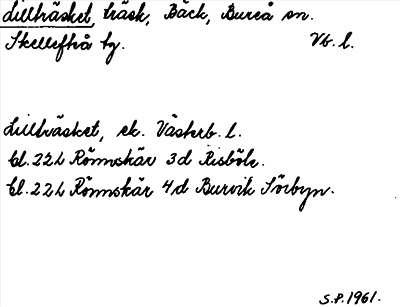 Lillträsket, träsk, Bäck, Bureå sn.
Skellefteå tg. Vb. l.
Lillträsket, ek. Västerb. l.
bl. 22L Rönnskär 3d Risböle.
bl. 22L Rönnskär 4d Burvik Sörbyn.
S.P. 1961.